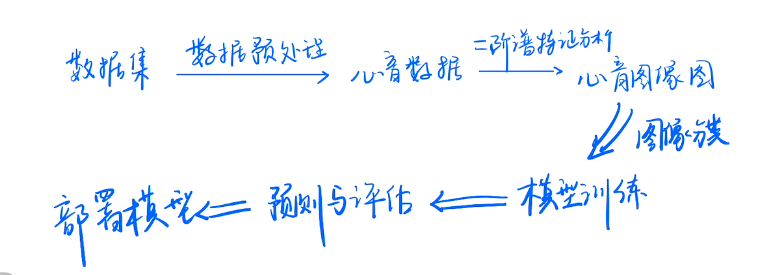 数据集 数据预处理 心音数据 二阶谱特征分析 心音图像图
图像分类
部署模型 预测与评估 模型训练